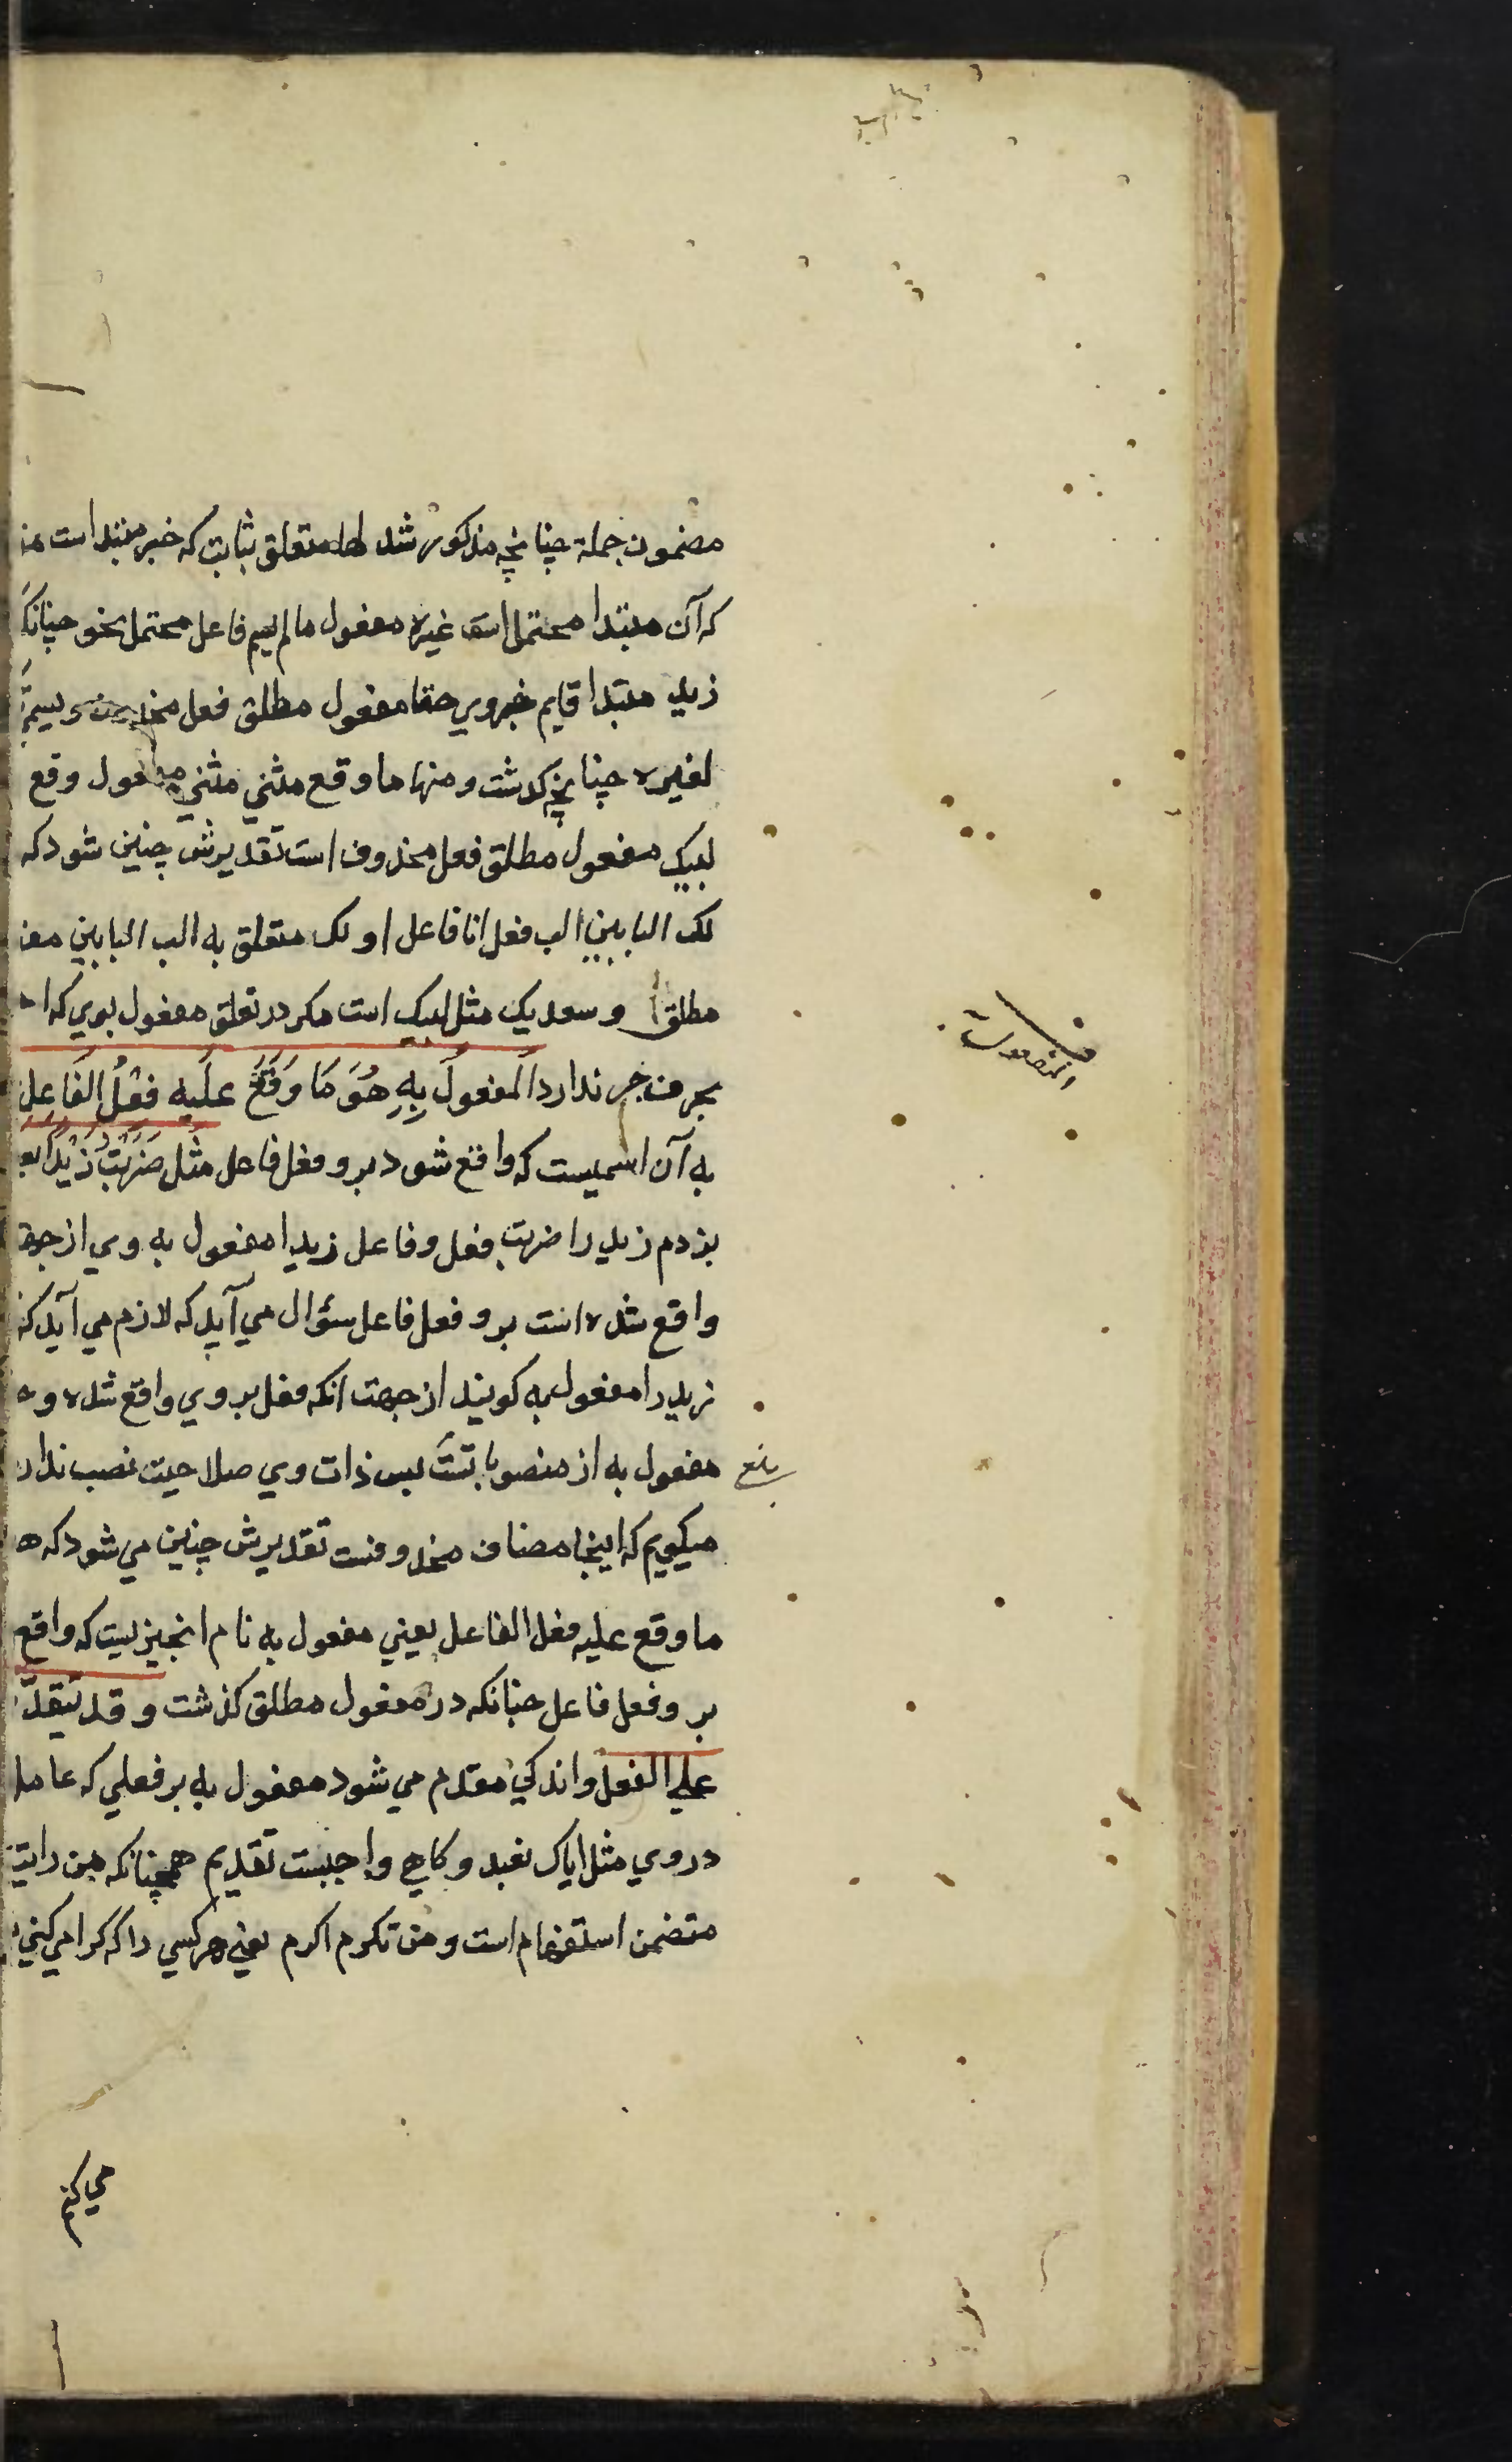 مضمون جملة چنانچه مذکور شد لها متعلق بثابت که خبر مبتدا است
که آن مبتدا محتمل است غیره مفعول ما لم یسم فاعل محتمل نحو چنانکه
زید مبتدا قایم خبر وی حقا مفعول مطلق فعل
لغیره چنانچه گذشت و منها ما وقع مثنی مثنی مفعول وقع
لبیک مفعول مطلق فعل محذوف است تقدیرش چنین شود که
لک البابین الب فعل انا فاعل او لک متعلق به الب البابین
مطلقا وسعدیک مثل لبیک است مکر در تعلق مفعول بوی که
بحرف جر ندارد المَفعولُ بِهِ هُوَ مَا وَقَعَ عَلَیه فعْلُ الفَاعل
به آن اسمیست که واقع شود برو فعل فاعل مثل ضَرَبْتُ زَیْدًا
بزدم زید را ضربت فعل وفاعل زیدا مفعول به وی از جهة
واقع شده است برو فعل فاعل سؤال می آید که لازم می آید که
زید را مفعول به کویند از جهت انکه فعل بر وی واقع شده و
مفعول به از منصوباتست بس ذات وی صلاحیت نصب ندارد
میکویم که اینجا مضاف محذوفست تقدیرش چنین می شود که
ما وقع علیه فعل الفاعل یعنی مفعول به نام انچیزیست که واقع
برو فعل فاعل چنانکه در مفعول مطلق کذشت و قد یتقدّم
علی الفعل واندکی مقدم می شود مفعول به بر فعلی که عامل
در وی مثل ایاک نعبد وکاهی واجبست تقدیم همچنانکه من رایت
متضمن استفهام است و من تکرم اکرم یعنی هر کسی را که کرامی کنی
می کنم
المفعول به
بلغ